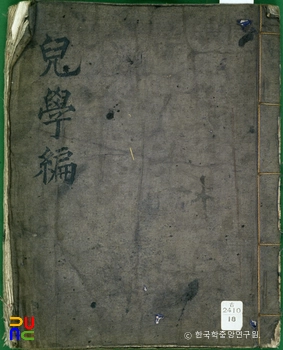 兒學編
2410
10
© 한국학중앙연구원